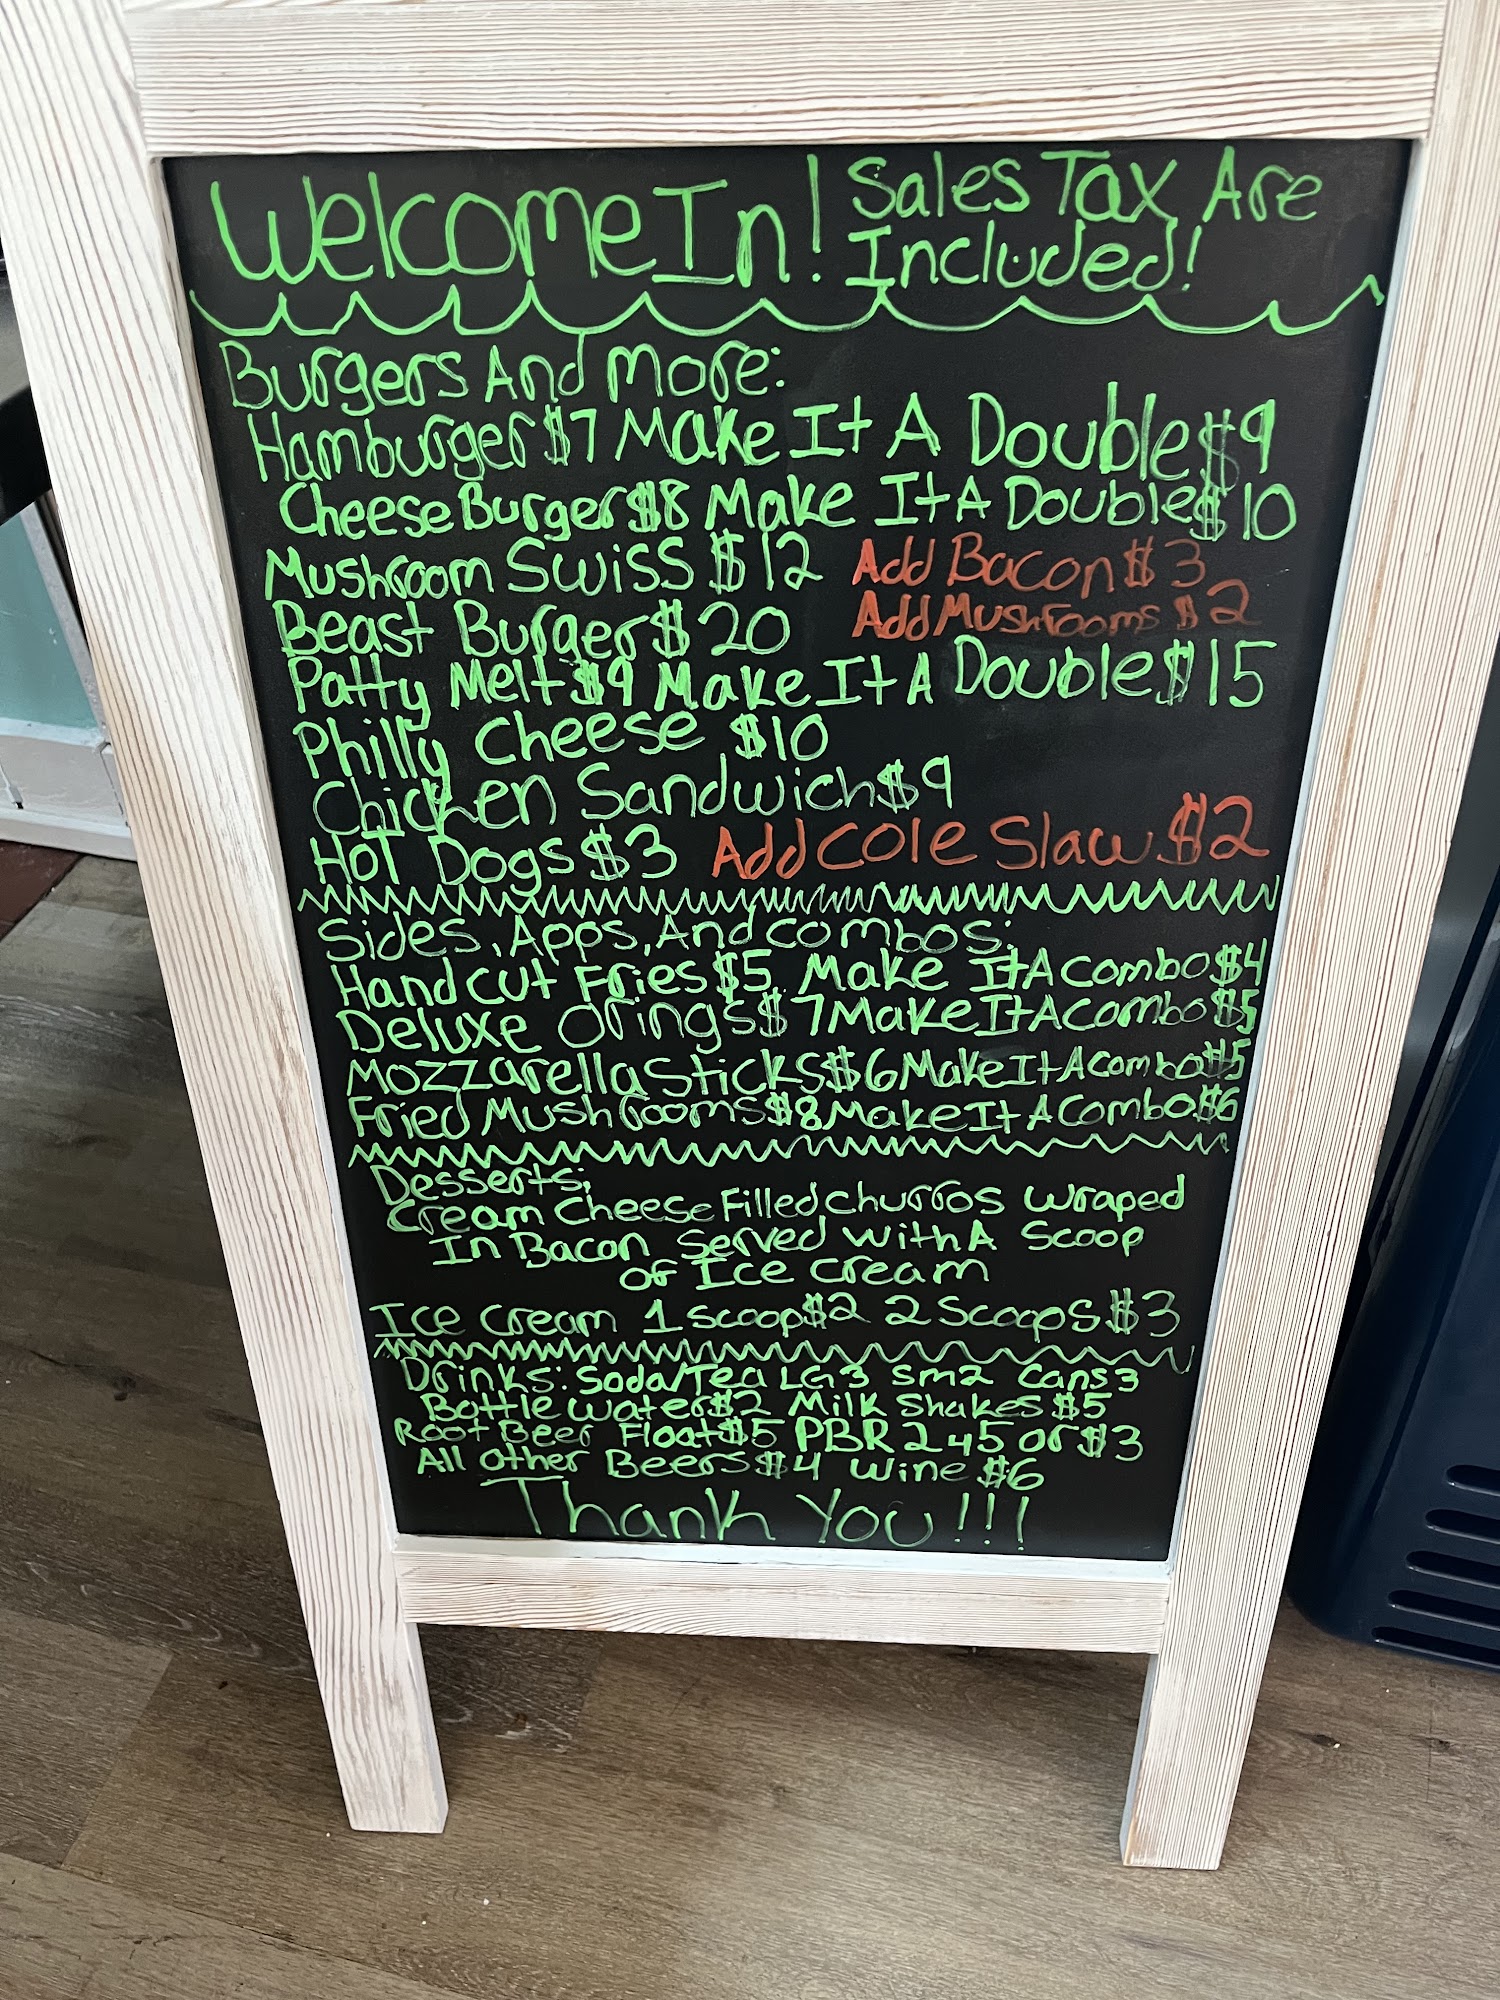 Welcome In! Sales Tax Are
Included!
Burgers And more:
Hamburger $7 Make It A Double $9
Cheese Burger $8 Make It A Double $10
Mushroom Swiss $12 Add Bacon $3
Beast Burger $20 Add Mushrooms $2
Patty Melt $9 Make It A Double $15
Philly Cheese $10
Chicken Sandwich $9
Hot Dogs $3 Add Cole Slaw $2
Sides, Apps, And combos:
Hand cut Fries $5 Make It A combo $4
Deluxe Orings $7 Make It A combo $5
Mozzarella Sticks $6 Make It A combo $5
Fried Mushrooms $8 Make It A Combo $6
Desserts:
Cream Cheese Filled churros wraped
In Bacon served with A scoop
of Ice cream
Ice cream 1 scoop $2 2 scoops $3
Drinks: Soda/Tea LG 3 sm 2 Cans 3
Bottle water $2 Milk shakes $5
Root Beer Float $5 PBR 2 4 5 or $3
All other Beers $4 wine $6
Thank You!!!